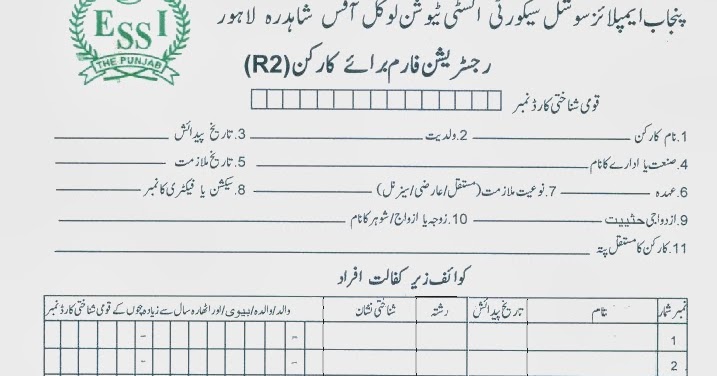 پنجاب ایمپلائز سوشل سیکورٹی انسٹی ٹیوشن لوکل آفس شاہدرہ لاہور
ESSI
THE PUNJAB
رجسٹریشن فارم برائے کارکن (R2)
قومی شناختی کارڈ نمبر
1. نام کارکن 2. ولدیت 3. تاریخ پیدائش
4. صنعت یا ادارے کا نام 5. تاریخ ملازمت
6. عہدہ 7. نوعیت ملازمت (مستقل/عارضی/سیزنل) 8. سیکشن یا فیکٹری کا نمبر
9. ازدواجی حثییت 10. زوجہ یا ازواج/شوہر کا نام
11. کارکن کا مستقل پتہ
کوائف زیر کفالت افراد
نمبر شمار نام تاریخ پیدائش رشتہ شناختی نشان والد/والدہ/بیوی/اور اٹھارہ سال سے زیادہ بچوں کے قومی شناختی کارڈ نمبر
1 - -
2 - -